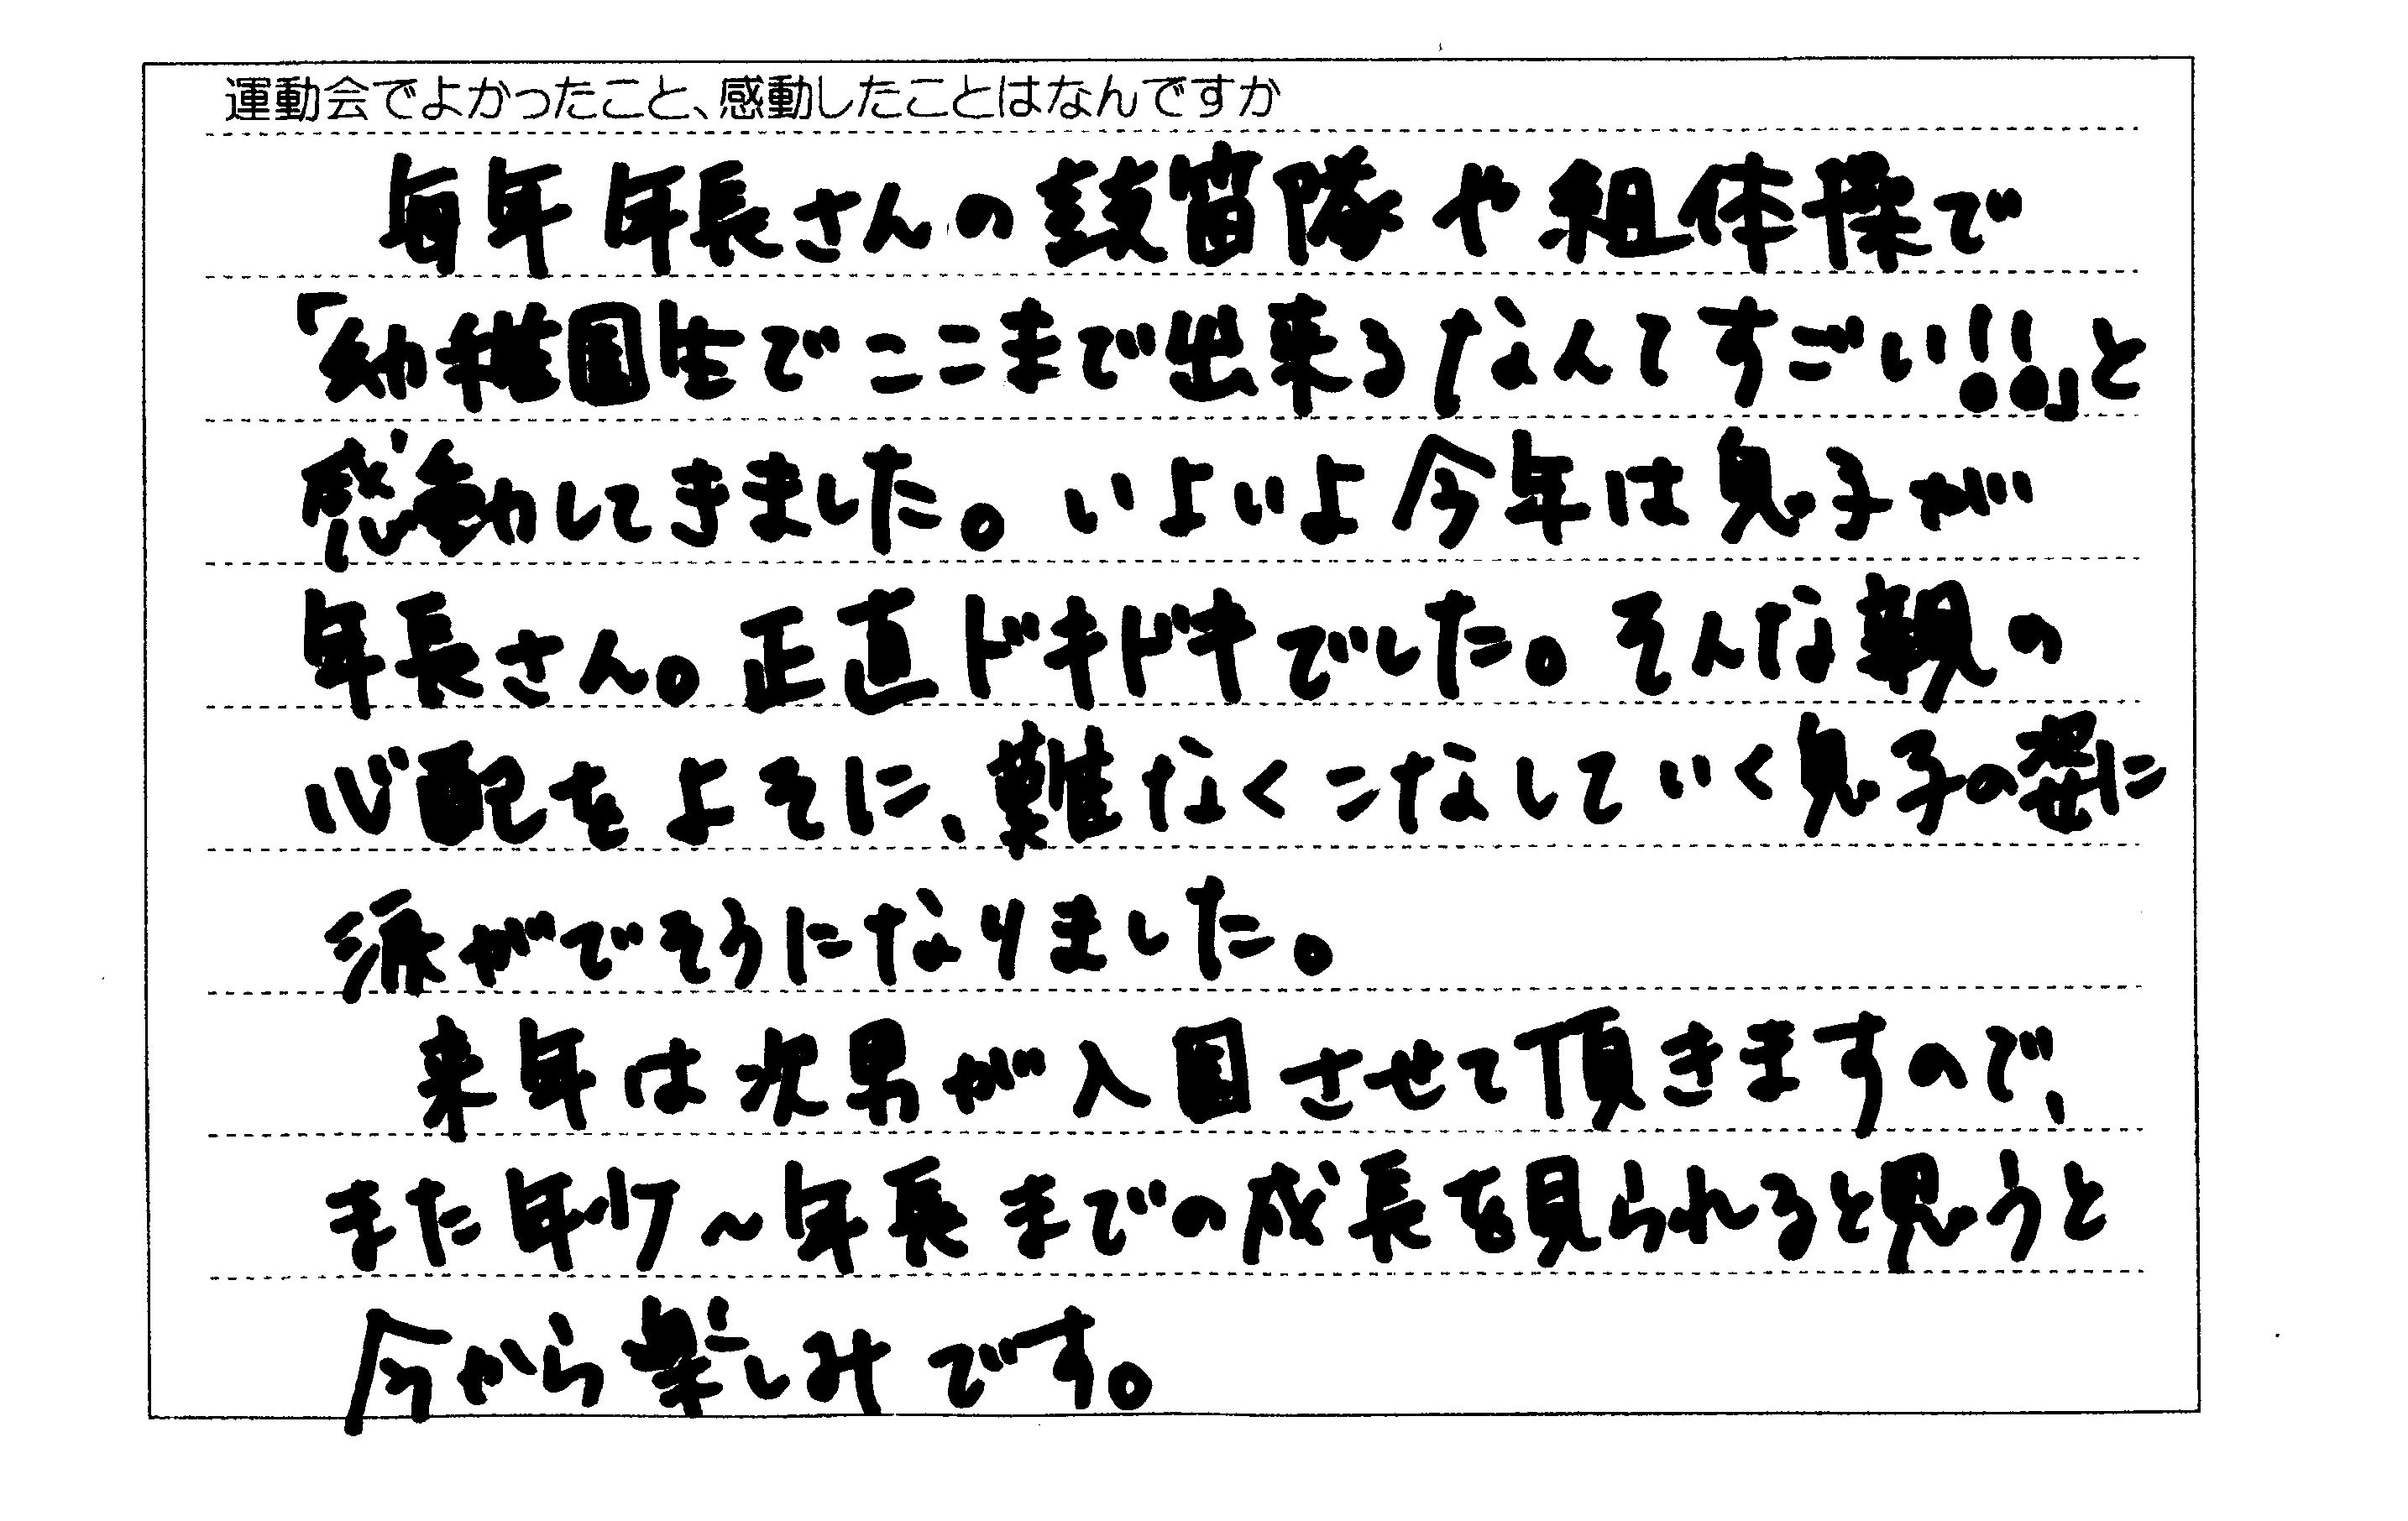 運動会でよかったこと、感動したことはなんですか
毎年年長さんの鼓笛隊や組体操で
「幼稚園生でここまで出来るなんてすごい!!」と
感動してきました。いよいよ今年は息子が
年長さん。正直ドキドキでした。そんな親の
心配をよそに、難なくこなしていく息子の姿に
涙がでそうになりました。
来年は次男が入園させて頂きますので、
また年少〜年長までの成長を見られると思うと
今から楽しみです。